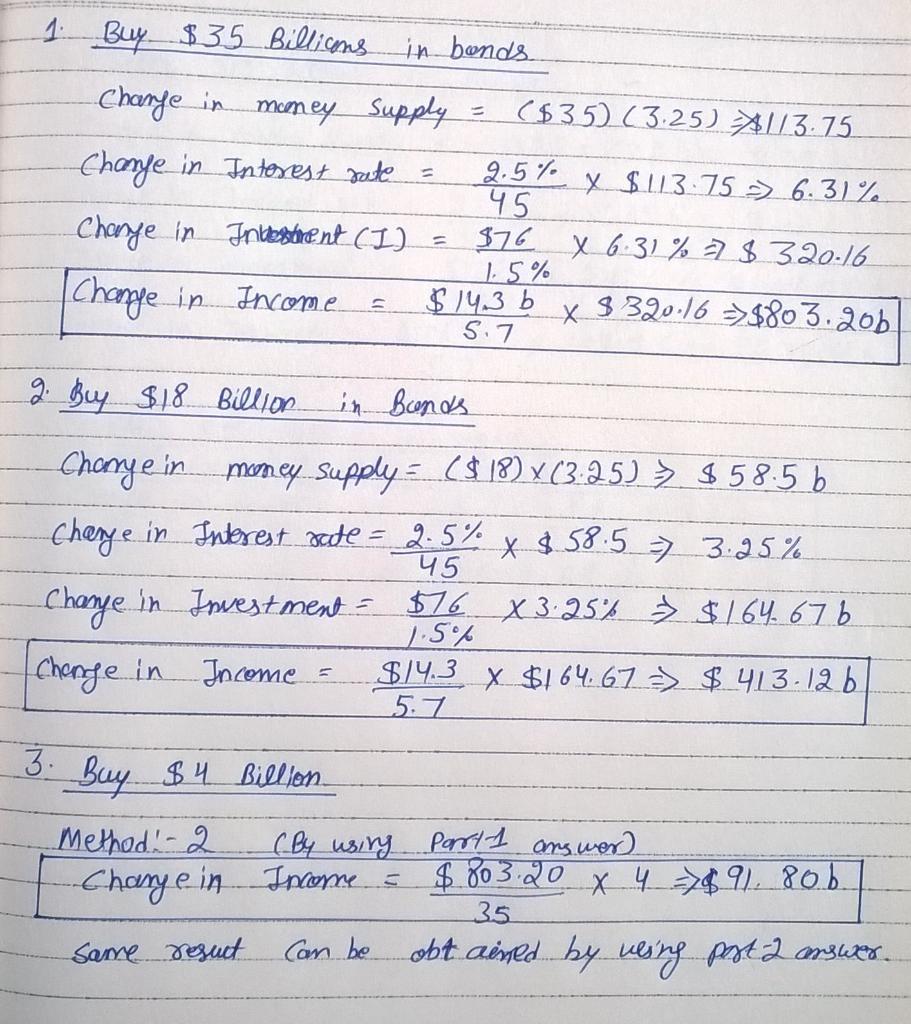 1. Buy $35 Billions in bonds
Change in money Supply = ($35) (3.25) ⇒ $113.75
Change in Interest rate = 2.5% / 45 × $113.75 ⇒ 6.31%
Change in Investment (I) = $76 / 1.5% × 6.31% ⇒ $320.16
Change in Income = $14.3 b / 5.7 × $320.16 ⇒ $803.20b
2. Buy $18 Billion in Bonds
Change in money supply = ($18) × (3.25) ⇒ $58.5 b
Change in Interest rate = 2.5% / 45 × $58.5 ⇒ 3.25%
Change in Investment = $76 / 1.5% × 3.25% ⇒ $164.67 b
Change in Income = $14.3 / 5.7 × $164.67 ⇒ $413.12 b
3. Buy $4 Billion
Method:- 2 (By using Part-1 answer)
Change in Income = $803.20 / 35 × 4 ⇒ $91.80b
Same result Can be obtained by using part-2 answer.